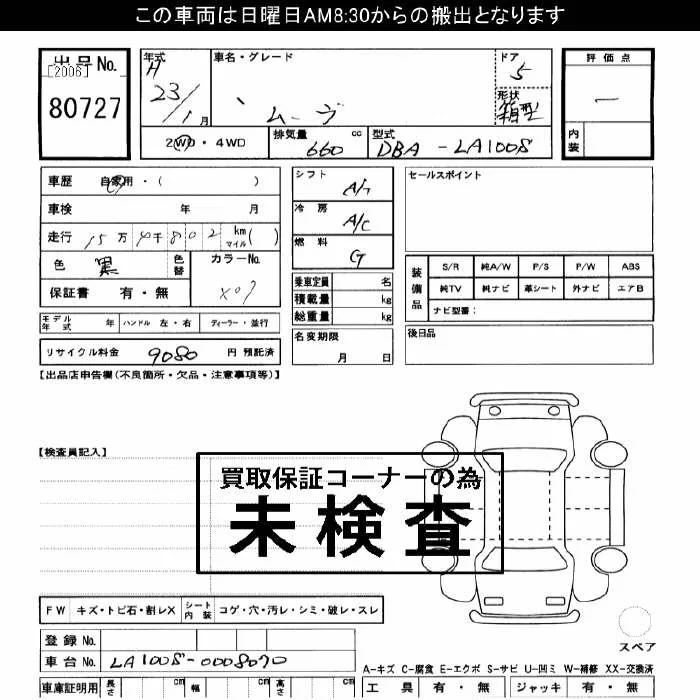 この車両は日曜日AM8:30からの搬出となります
出品No.
[2006]
80727
年式
H
23/1月
車名・グレード
ムーヴ
ドア
5
形状
箱型
評価点
一
内装
2WD・4WD
排気量
660 cc
型式
DBA-LA100S
車歴 自家用・( )
車検 年 月
走行 15万 4千 802 km マイル( )
色 黒
色替
カラーNo.
X07
保証書 有・無
モデル年式 年 ハンドル 左・右 ディーラー・並行
リサイクル料金 9080 円 預託済
シフト
A/T
冷房
A/C
燃料
G
乗車定員 名
積載量 kg
総重量 kg
名変期限
月 日
セールスポイント
装備品
S/R 純A/W P/S P/W ABS
純TV 純ナビ 革シート 外ナビ エアB
ナビ型番:
後日品
【出品店申告欄(不良箇所・欠品・注意事項等)】
【検査員記入】
買取保証コーナーの為
未検査
FW キズ・トビ石・割レX シート内装 コゲ・穴・汚レ・シミ・破レ・スレ
登録No.
車台No. LA100S-0008070
車庫証明用 長さ cm 幅 cm 高さ cm
スペア
A-キズ C-腐食 E-エクボ S-サビ U-凹ミ W-補修 XX-交換済
工具 有・無 ジャッキ 有・無